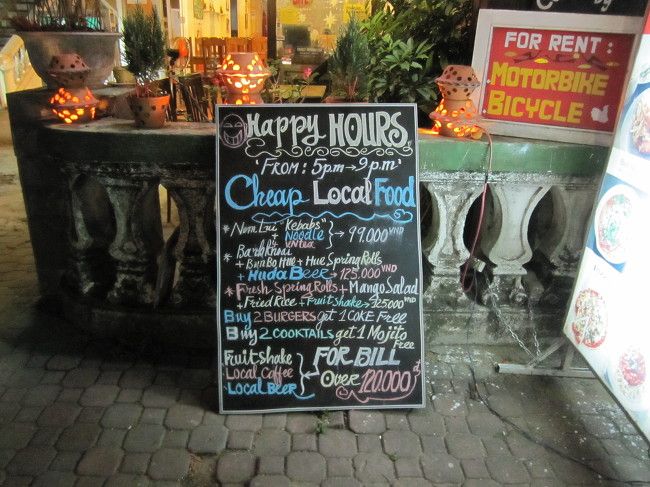 FOR RENT:
MOTORBIKE
BICYCLE
Happy HOURS
FROM: 5pm → 9pm
Cheap Local Food
* Nem Lui "Kebabs"
+ Noodle → 99.000 VND
* Bánh Khoai
+ Bun Bo Hue + Hue Spring Rolls
+ Huda Beer → 125.000 VND
* Fresh Spring Rolls + Mango Salad
+ Fried Rice + Fruit shake → 125000 VND
BUY 2 BURGERS get 1 COKE Free
Buy 2 COCKTAILS get 1 Mojito Free
Fruit shake
Local Coffee
Local BEER
FOR BILL
Over 120.000 đ